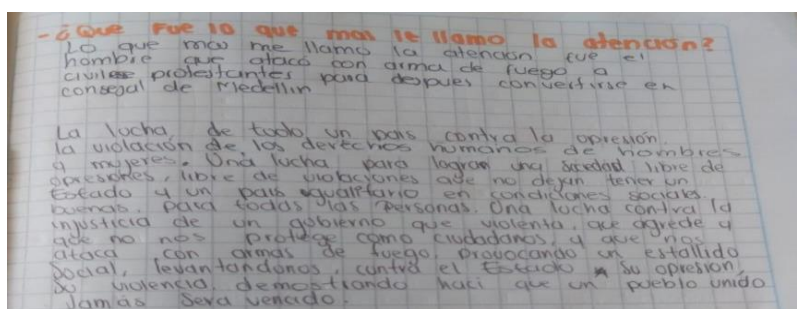 - ¿Que Fue lo que mas le llamo la atención?
Lo que mas me llamo la atencion fue el
hombre que ataco con arma de fuego a
civiles protestantes para despues convertirse en
consejal de Medellin
La lucha de todo un pais contra la opresión,
la violación de los derechos humanos de hombres
y mujeres. Una lucha para lograr una sociedad libre de
opresiones, libre de violaciones que no dejan tener un
Estado y un pais igualitario en condiciones sociales
buenas para todas las personas. Una lucha contra la
injusticia de un gobierno que violenta, que agrede y
que no nos protege como ciudadanos, y que nos
ataca con armas de fuego, provocando un estallido
social, levantandonos contra el Estado su opresion,
su violencia, demostrando haci que un pueblo unido
Jamás Sera vencido.